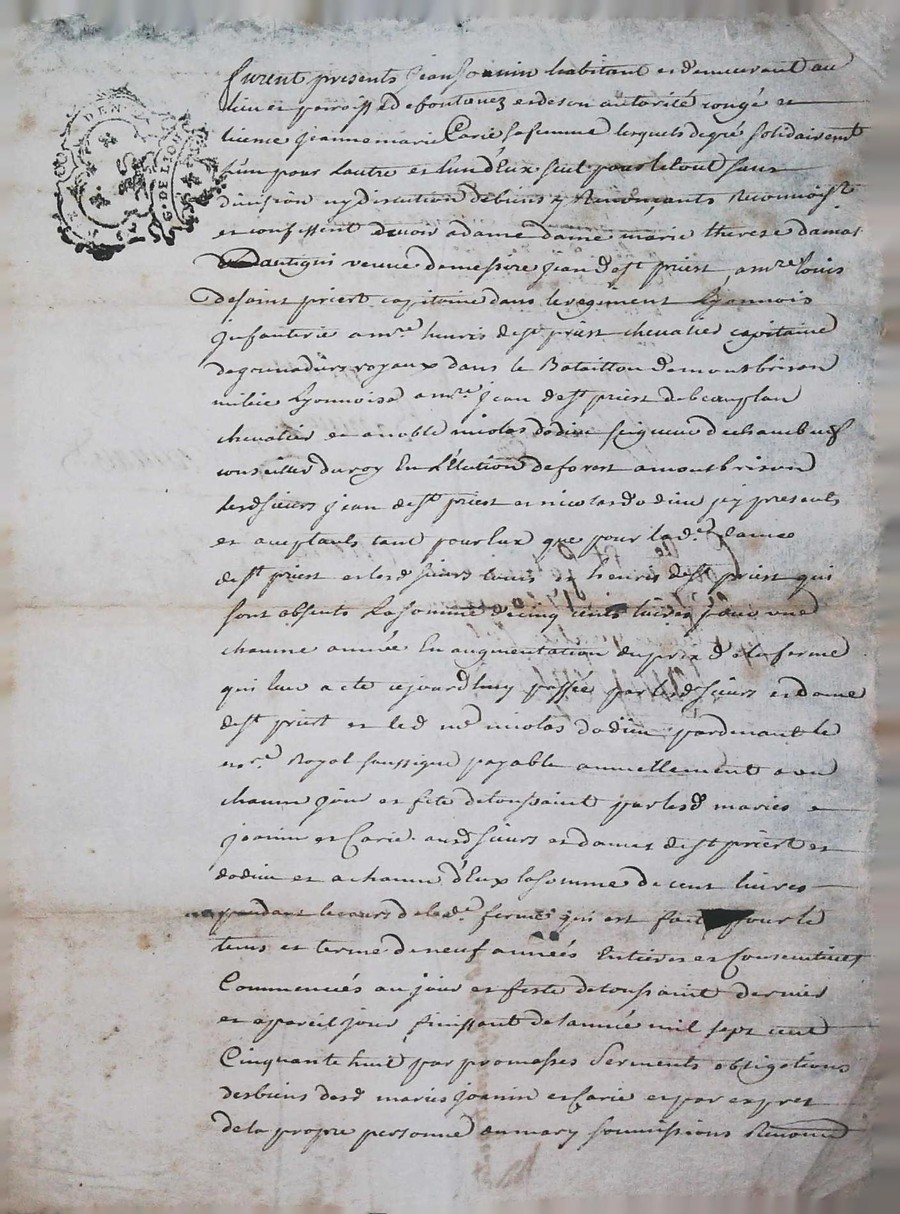 DEN
G. DE LION
furent presents jean joanin habitant et demeurant au
lieu et parroisse de fontanez et de son autorité congé et
licence jeanne marie Carie sa femme lesquels de gré solidairement
l'un pour l'autre et l'un d'Eux seul pour le tout sans
division ny discution de biens y Renonçants Reconnoiss.t
et confessent devoir a dame dame marie therese damas
Dantigni veuve de messire jean de s.t priest, a m.re louis
De saint priest capitaine dans le regiment Lyonnois
jnfanterie a m.re henris de s.t priest chevalier capitaine
de grenadiers royaux dans le Bataillon de montbrison
milice Lyonnoise a m.re jean de s.t priest de beauplan
chevalier et a noble nicolas dodieu seigneur de chambeuf
conseiller du roy En l'Election de forest a montbrison
lesd sieurs jean de s.t priest et nicolas dodieu jcy presents
et acceptants tant pour Eux que pour lad.e dame
de s.t priest et lesd sieurs louis et henris de s.t priest qui
sont absents La somme de cinq cents livres pour une
chacune année En augmentation du prix de la ferme
qui leur a eté cejourd'huy passée par lesd sieurs et dame
de s.t priest et led m.e nicolas dodieu pardevant le
no.re Royal soussigné payable annuellement a un
chacun jour et fete de toussaint par lesd mariés
joanin et Carie auxd sieurs et dames de s.t priest et
dodieu et a chacun d'Eux la somme de cent livres
pendant le cours de lad.e ferme qui est faite pour le
tems et terme de neuf années Entieres et Consecutives
Commencées au jour et feste de toussaint dernier
et a pareil jour finissant de l'année mil sept cent
Cinquante huit par promesses Serments obligations
des biens desd mariés joanin et Carie et par exprès
de la propre personne du mary soumissions Renonc